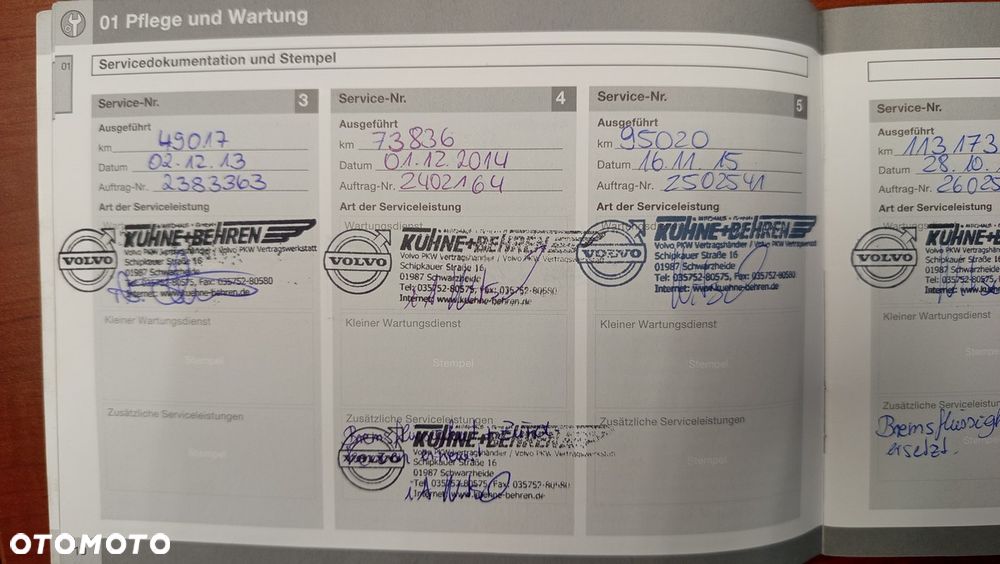 01 Pflege und Wartung
01
Servicedokumentation und Stempel
Service-Nr. 3
Ausgeführt
km 49017
Datum 02.12.13
Auftrag-Nr. 2383363
Art der Serviceleistung
KÜHNE+BEHREN
Volvo PKW Vertragswerkstatt
Schipkauer Straße 16
01987 Schwarzheide
Tel: 035752-80575, Fax: 035752-80580
Internet: www.kuehne-behren.de
VOLVO
Kleiner Wartungsdienst
Stempel
Zusätzliche Serviceleistungen
Stempel
Service-Nr. 4
Ausgeführt
km 73836
Datum 01.12.2014
Auftrag-Nr. 2402164
Art der Serviceleistung
KÜHNE+BEHREN
Volvo PKW Vertragshändler / Volvo PKW Vertragswerkstatt
Schipkauer Straße 16
01987 Schwarzheide
Tel: 035752-80575, Fax: 035752-80580
Internet: www.kuehne-behren.de
VOLVO
Kleiner Wartungsdienst
Stempel
Zusätzliche Serviceleistungen
KÜHNE+BEHREN
Volvo PKW Vertragshändler / Volvo PKW Vertragswerkstatt
Schipkauer Straße 16
01987 Schwarzheide
Tel: 035752-80575, Fax: 035752-80580
Internet: www.kuehne-behren.de
VOLVO
Service-Nr. 5
Ausgeführt
km 95020
Datum 16.11.15
Auftrag-Nr. 2502541
Art der Serviceleistung
KÜHNE+BEHREN
Volvo PKW Vertragshändler / Volvo PKW Vertragswerkstatt
Schipkauer Straße 16
01987 Schwarzheide
Tel: 035752-80575, Fax: 035752-80580
Internet: www.kuehne-behren.de
VOLVO
Kleiner Wartungsdienst
Stempel
Zusätzliche Serviceleistungen
Stempel
Service-Nr.
Ausgeführt
km 113173
Datum 28.10.
Auftrag-Nr. 2602
Art der Serviceleistung
KÜHNE+BE
Volvo PKW Vertragshänd
Schipkauer Straße 16
01987 Schwarzheide
Tel: 035752-80575
Internet: www.kue
VOLVO
Kleiner Wartungsdienst
Zusätzliche Serviceleistun
Bremsflüssigk
ersetzt.
OTOMOTO